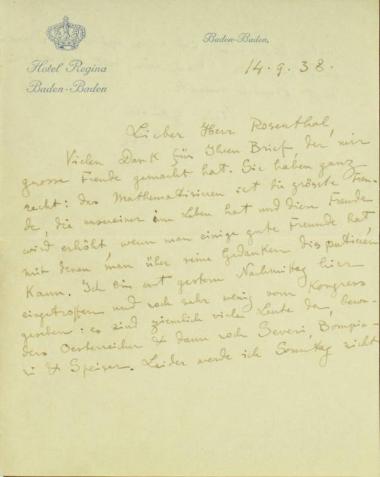 Hotel Regina
Baden-Baden
Baden-Baden,
14.9.38.
Lieber Herr Rosenthal,
Vielen Dank für Ihren Brief der mir
grosse Freude gemacht hat. Sie haben ganz
recht: das Mathematisieren ist die grösste Freu-
de, die unsereiner im Leben hat und diese Freude
wird erhöht wenn man einige gute Freunde hat,
mit denen man über seine Gedanken disputieren
kann. Ich bin erst gestern Nachmittag hier
eingetroffen und noch sehr wenig vom Kongress
gesehen: es sind ziemlich viele Leute da, beson-
ders Oesterreicher & dann noch Severi, Bompia-
ni & Speiser. Leider werde ich Sonntag nicht